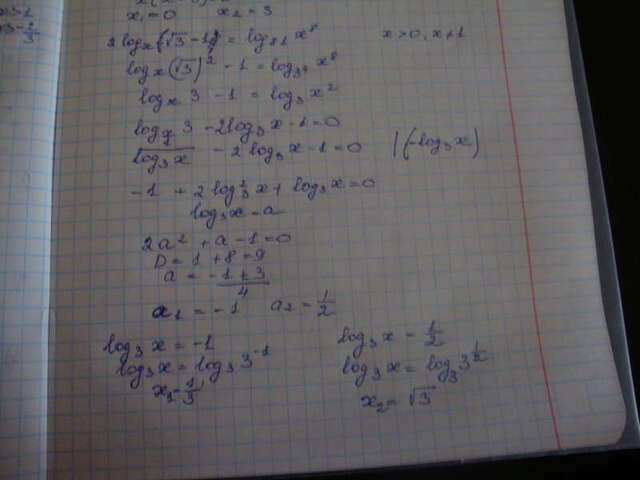 x₁=0 x₂=3
2 log_x(√3-1) = log₈₁ x⁸ x>0, x≠1
log_x(√3)² - 1 = log₃₄ x⁸
log_x 3 - 1 = log₃ x²
log_x 3 - 2log₃x - 1 = 0
1/log₃x - 2 log₃x - 1 = 0 |(-log₃x)
-1 + 2log₃²x + log₃x = 0
log₃x = a
2a² + a - 1 = 0
D = 1 + 8 = 9
a = (-1±3)/4
a₁ = -1 a₂ = 1/2
log₃x = -1 log₃x = 1/2
log₃x = log₃3⁻¹ log₃x = log₃3^(1/2)
x₁ = 1/3 x₂ = √3